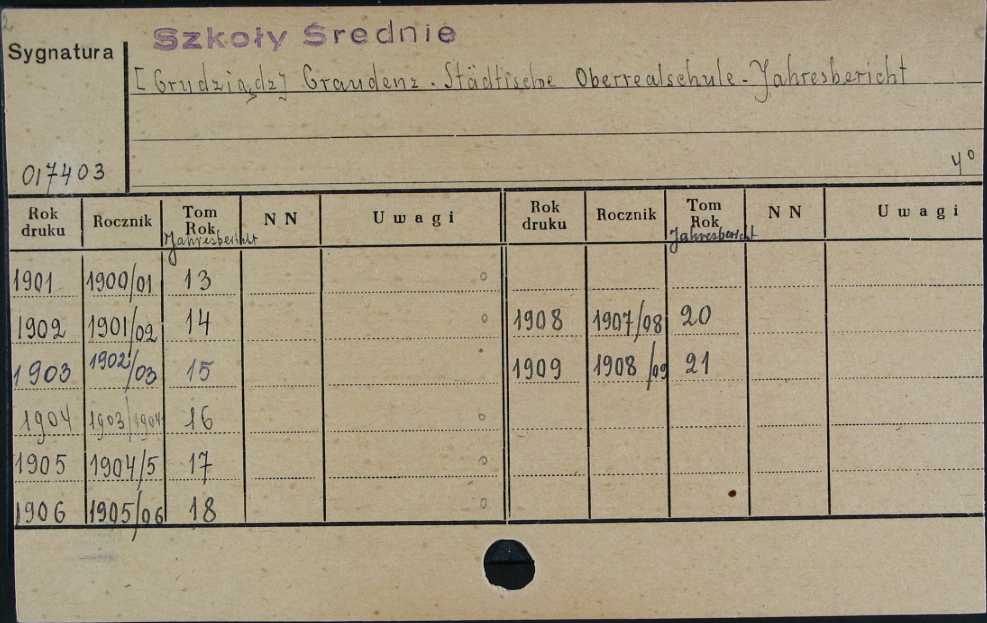 Szkoły Średnie
Sygnatura
[Grudziądz] Graudenz. Städtische Oberrealschule - Jahresbericht
017403
4°
Rok druku Rocznik Tom Rok Jahresbericht N N Uwagi Rok druku Rocznik Tom Rok Jahresbericht N N Uwagi
1901 1900/01 13
1902 1901/02 14 1908 1907/08 20
1903 1902/03 15 1909 1908/09 21
1904 1903/1904 16
1905 1904/5 17
1906 1905/06 18